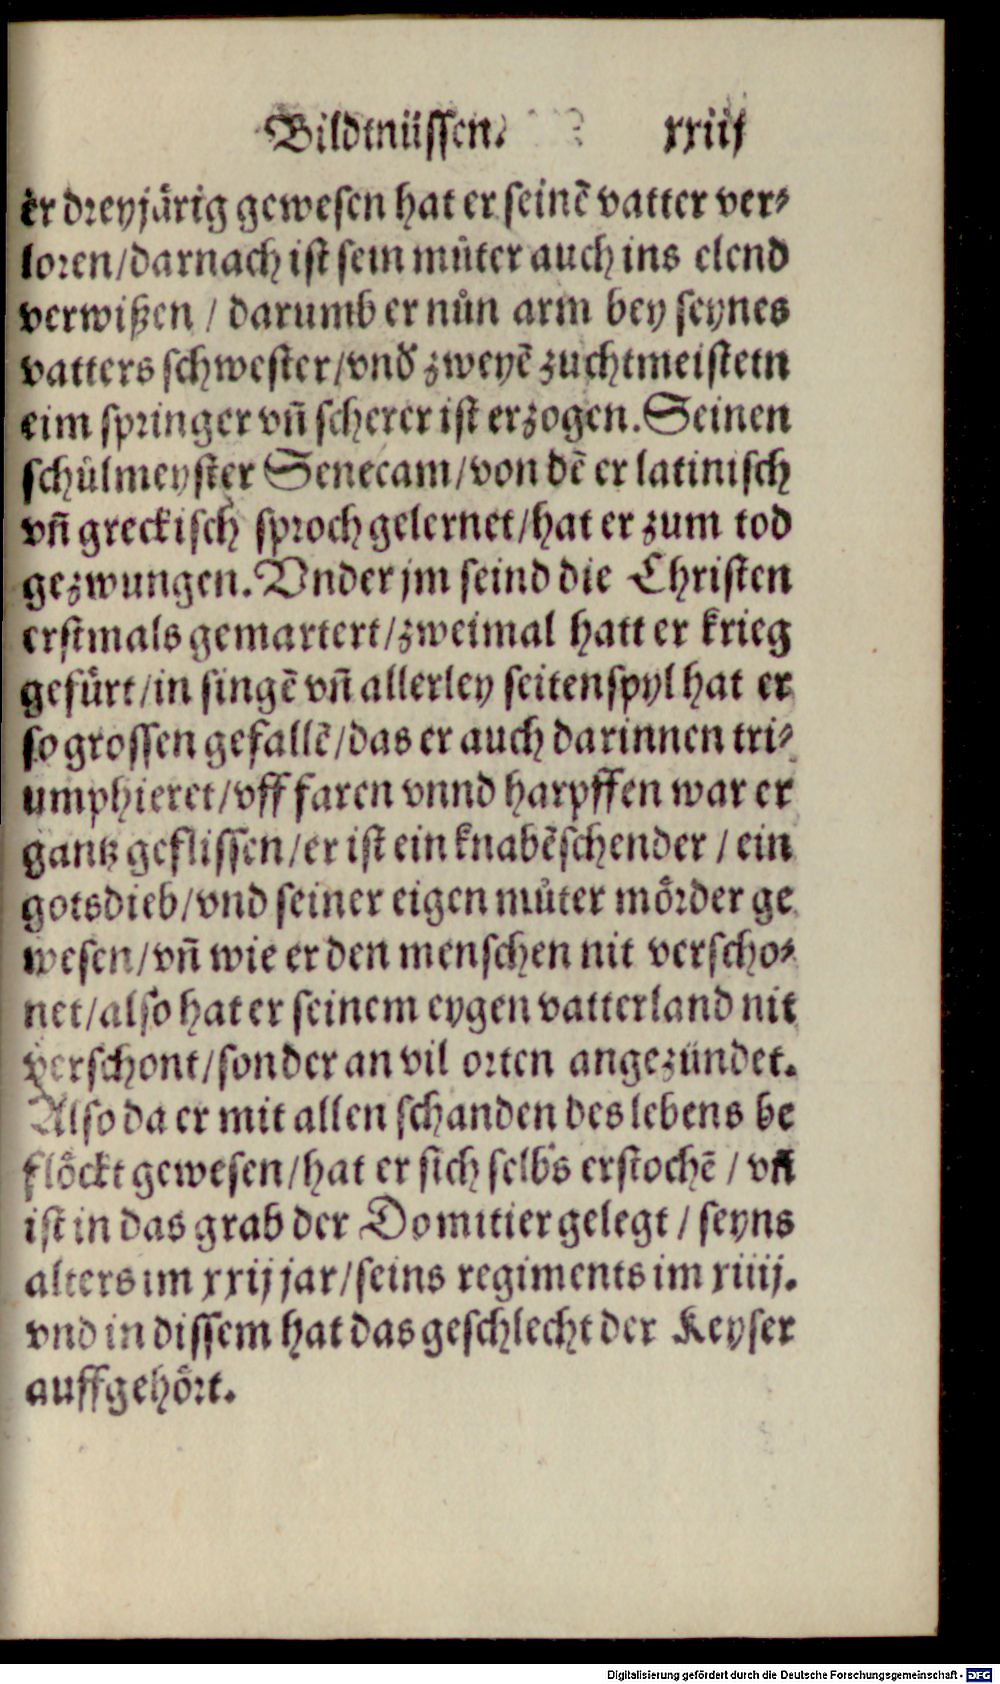 Bildtnüssen. xxiij
er dreyjårig gewesen hat er seinē vatter ver⸗
loren/darnach ist sein můter auch ins elend
verwißen / darumb er nůn arm bey seynes
vatters schwester/vnd zweyē zuchtmeistern
eim springer vñ scherer ist erzogen. Seinen
schůlmeyster Senecam/von dē er latinisch
vñ greckisch sproch gelernet/hat er zum tod
gezwungen. Vnder jm seind die Christen
erstmals gemartert/zweimal hatt er krieg
gefůrt/in singē vñ allerley seitenspyl hat er
so grossen gefallē/das er auch darinnen tri⸗
umphieret/vff faren vnnd harpffen war er
gantz geflissen/er ist ein knabēschender / ein
gotsdieb/vnd seiner eigen můter mőrder ge
wesen/vñ wie er den menschen nit verscho⸗
net/also hat er seinem eygen vatterland nit
verschont/sonder an vil orten angezündet.
Also da er mit allen schanden des lebens be
flőckt gewesen/hat er sich selbs erstochē / vñ
ist in das grab der Domitier gelegt / seyns
alters im xxij jar/seins regiments im xiiij.
vnd in dissem hat das geschlecht der Keyser
auffgehőrt.
Digitalisierung gefördert durch die Deutsche Forschungsgemeinschaft - DFG